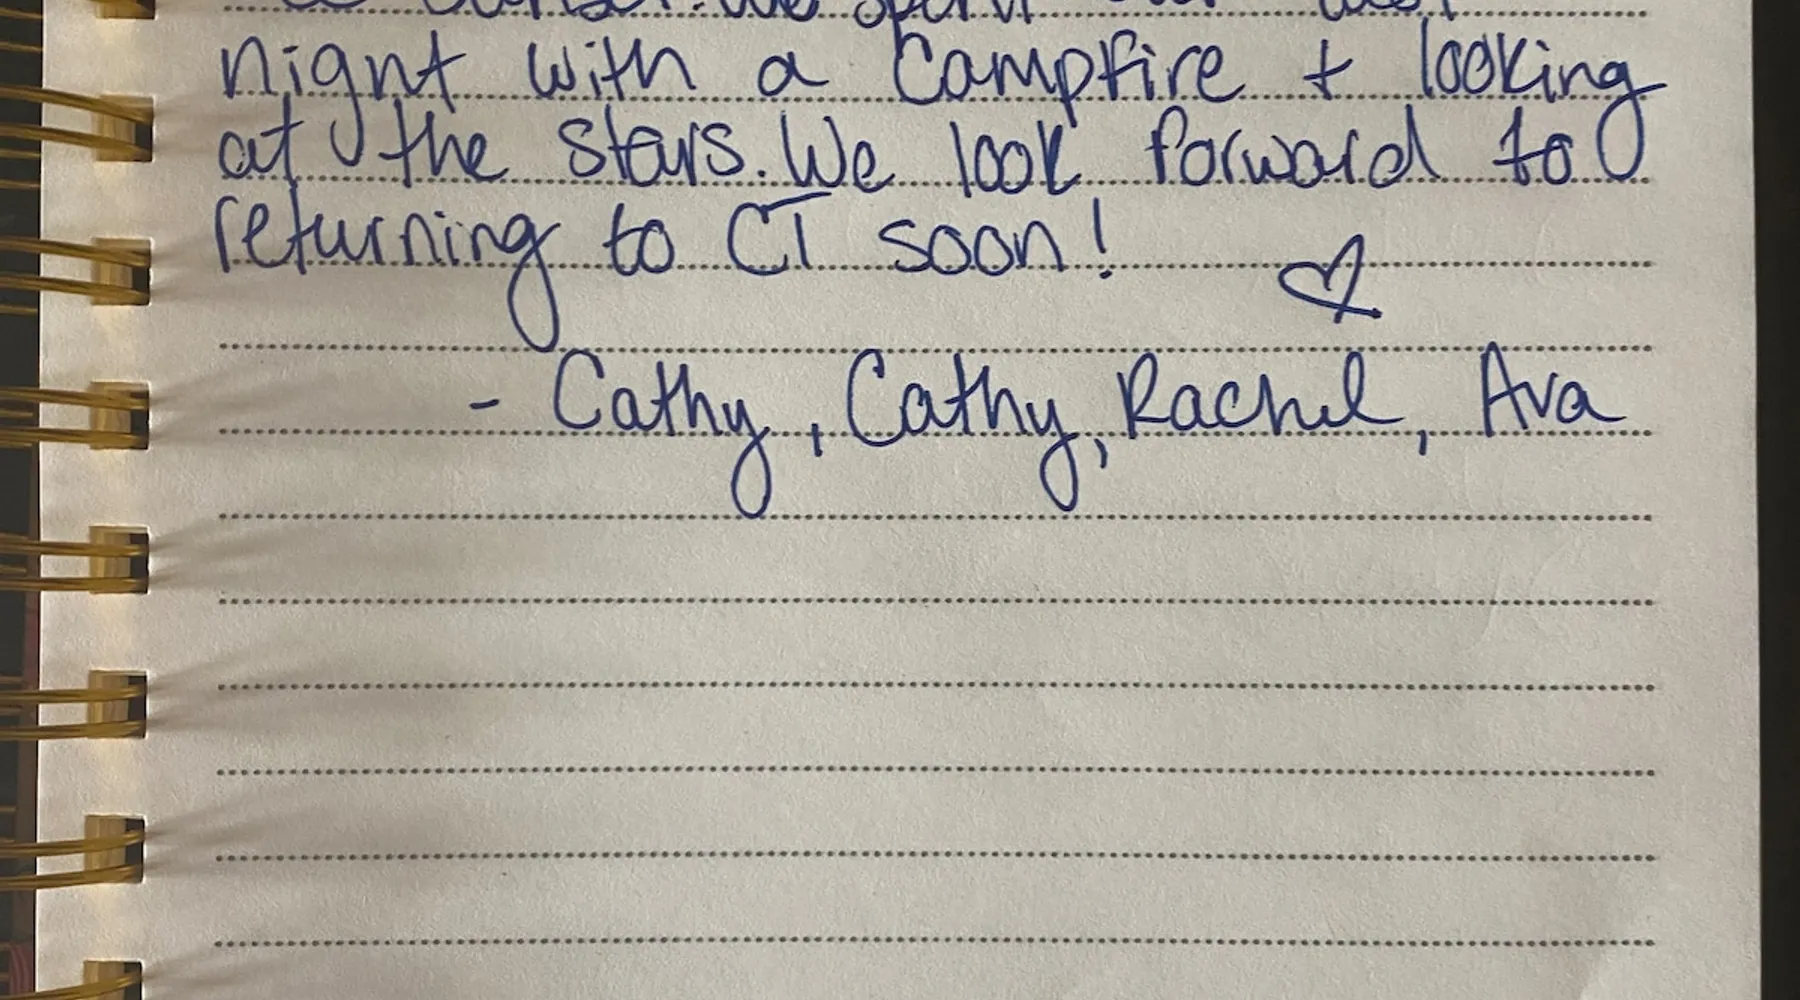 We spent our last
night with a campfire + looking
at the stars. We look forward to
returning to CT soon!
- Cathy, Cathy, Rachel, Ava